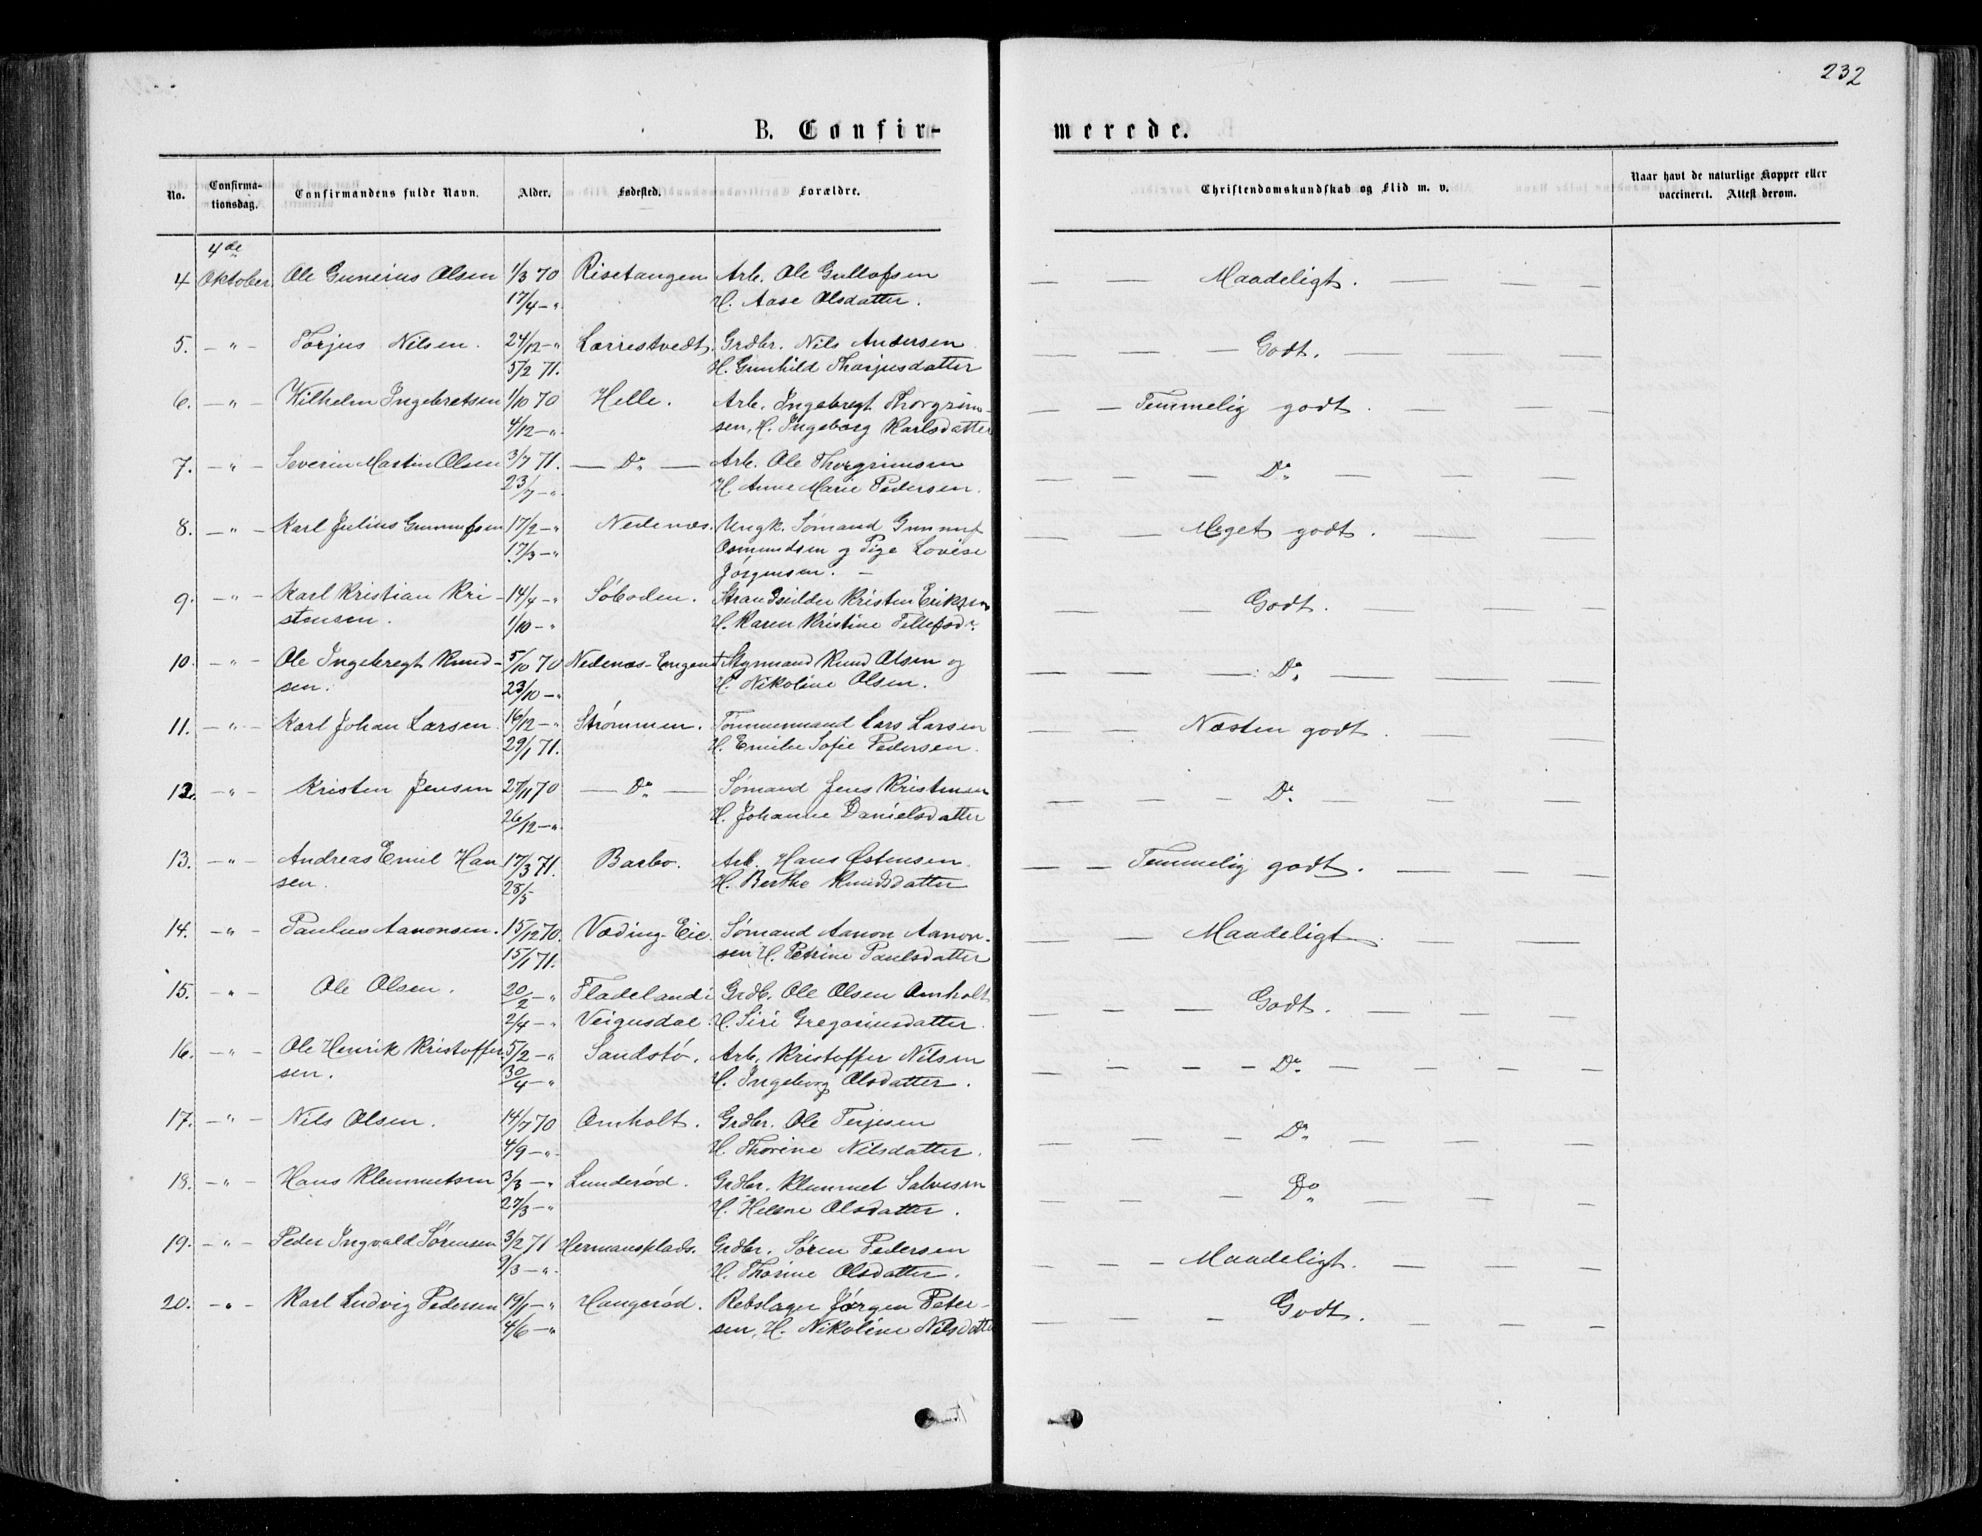 232
B. Confir-
merede.
No.
Confirma-
tionsdag.
Confirmandens fulde Navn.
Alder.
Fødested.
Forældre.
Christendomskundskab og Flid m. v.
Naar havt de naturlige Kopper eller
vaccineret. Attest derom.
4de
4 Oktober. Ole Gunerius Olsen 1/3 70 Risetangen Arb. Ole Gullofsen — — Maadeligt. — — —
17/4 — „ H. Aase Olsdatter.
5. — „ — Torjus Nilsen. 24/12 — „ Lærrestvedt. Grdbr. Nils Andersen — — — Godt. — — —
5/2 71. H. Gunhild Tharjusdatter
6. — „ — Wilhelm Ingebretsen 1/10 70 Helle. Arb. Ingebregt Thorgrim- — — Temmelig godt. — — —
4/12 — „ sen, H. Ingeborg Karlsdatter
7. — „ — Severin Martin Olsen 3/7 71. — Do — Arb. Ole Thorgrimsen — — — Do — — —
23/7 — „ H. Anne Marie Pedersen.
8. — „ — Karl Julius Gunnufsen 17/2 — „ Nedenæs. Ungk. Sømand Gunnuf — — Meget godt. — — —
17/3 — „ Osmundsen og Pige Lovise
Jørgensen. —
9. — „ — Karl Kristian Kri- 14/4 — „ Søboden. Strandsidder Kristen Eriksen — — — Godt. — — —
stensen. 1/10 — „ H. Karen Kristine Tellefsdr.
10. — „ — Ole Ingebregt Knud- 5/10 70 Nedenæs-Engene Styrmand Knud Olsen og — — — Do — — —
sen. 23/10 — „ H. Nikoline Olsen.
11. — „ — Karl Johan Larsen 16/12 — „ Strømmen. Tømmermand Lars Larsen — — Næsten godt. — — —
29/1 71. H. Emilie Sofie Pedersen.
12. — „ — Kristen Jensen 27/11 70 — Do — Sømand Jens Kristensen — — — Do — — —
26/12 — „ H. Johanne Danielsdatter
13. — „ — Andreas Emil Han- 17/3 71. Barbo. Arb. Hans Østensen — — Temmelig godt. — — —
sen. 28/5 H. Berthe Knudsdatter
14. — „ — Paulus Aanonsen. 15/12 70. Væding-Eie. Sømand Aanon Aanon- — — Maadeligt — — —
15/1 71. sen H. Petrine Paulsdatter
15. — „ — Ole Olsen. 20/2 — „ Fladeland i Grdb. Ole Olsen Omholt — — — Godt. — — —
2/4 — „ Veigusdal. H. Siri Gregoriusdatter.
16. — „ — Ole Henrik Kristoffer- 5/2 — „ Sandstø. Arb. Kristoffer Nilsen — — — Do — — —
sen. 30/4 — „ H. Ingeborg Olsdatter.
17. — „ — Nils Olsen. 14/7 70 Omholt. Grdbr. Ole Terjesen — — — Do — — —
4/9 — „ H. Thorine Nilsdatter.
18. — „ — Hans Klemmetsen 3/3 — „ Lunderød. Grdbr. Klemmet Salvesen — — — Do — — —
27/3 — „ H. Helene Olsdatter.
19. — „ — Peder Ingvald Sørensen 3/2 71 Hermansplads. Grdbr. Søren Pedersen — — — Maadeligt. — — —
9/3 — „ H. Thorine Olsdatter.
20. — „ — Karl Ludvig Pedersen 19/1 — „ Haugerød. Rebslager Jørgen Peter- — — — Godt. — — —
4/6 — „ sen, H. Nikoline Nilsdatter